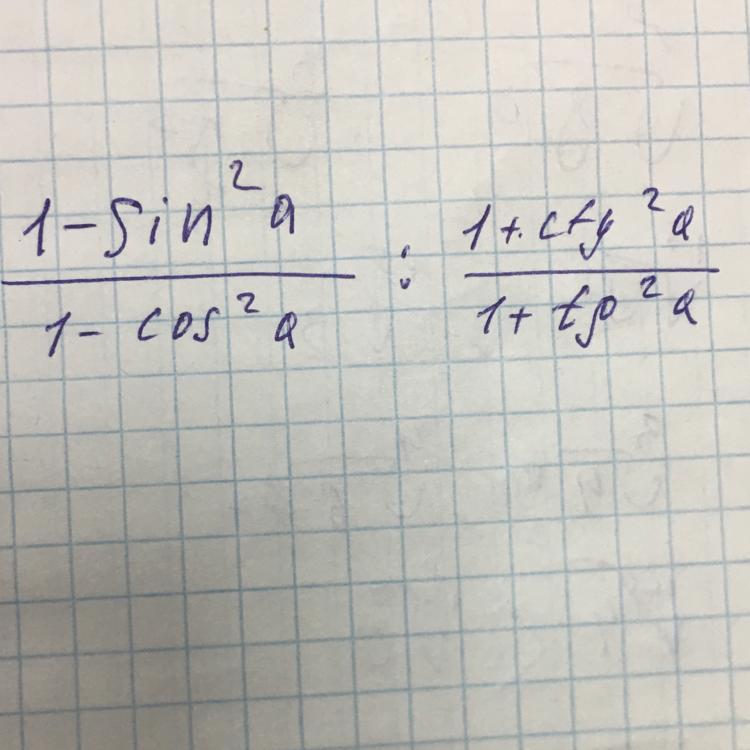 1 - sin² a / 1 - cos² a : 1 + ctg² a / 1 + tg² a